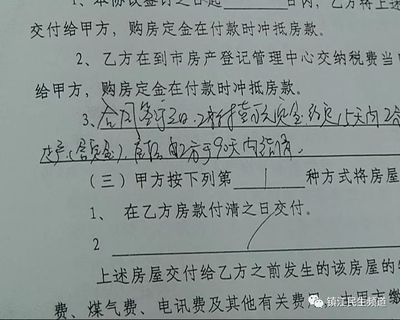 1、本协议签订之日起 日内，乙方将上述
交付给甲方，购房定金在付款时冲抵房款。
2、乙方在到市房产登记管理中心交纳税费当
给甲方，购房定金在付款时冲抵房款。
3、合同签订之日，乙方付壹万元定金，约定15天内
（含定金），尾款由乙方于90天内结清.
（三）甲方按下列第 1 种方式将房屋
1、 在乙方房款付清之日交付。
2
上述房屋交付给乙方之前发生的该房屋的
费、煤气费、电讯费及其他有关费用，由甲方缴
镇江民生频道